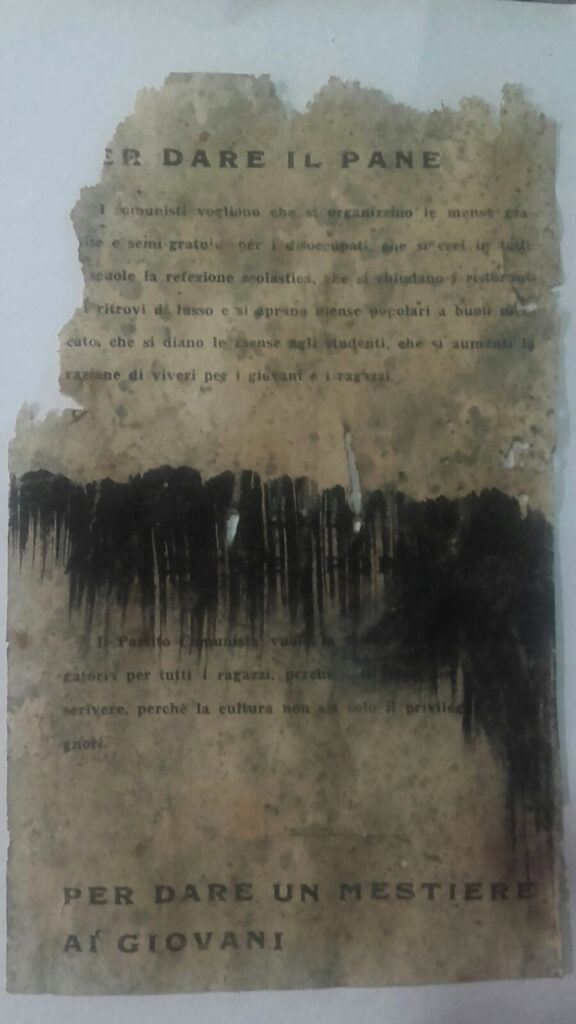 ER DARE IL PANE
I comunisti vogliono che si organizzino le mense gra-
ite e semi-gratuite per i disoccupati, che si crei in tutte
scuole la refezione scolastica, che si chiudano i ristoranti
i ritrovi di lusso e si aprano mense popolari a buon mer-
cato, che si diano le mense agli studenti, che si aumenti la
razione di viveri per i giovani e i ragazzi.
Il Partito Comunista vuole la
gatoria per tutti i ragazzi, perchè
scrivere, perchè la cultura non sia solo il privileg
gnori.
PER DARE UN MESTIERE
AI GIOVANI